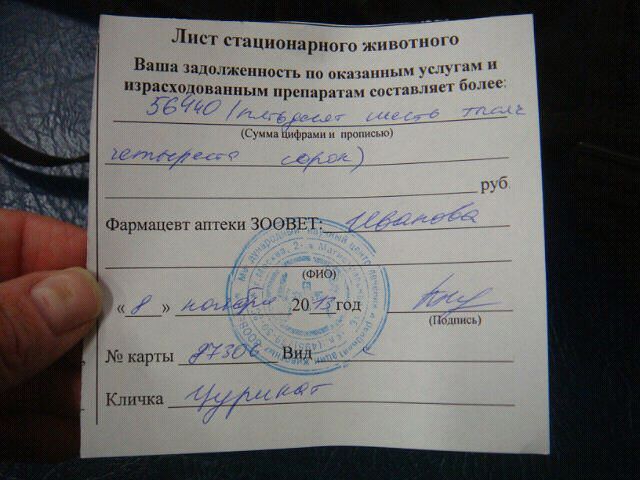 Лист стационарного животного
Ваша задолженность по оказанным услугам и
израсходованным препаратам составляет более:
56440 (пятьдесят шесть тысяч
(Сумма цифрами и прописью)
четыреста сорок)
руб.
Фармацевт аптеки ЗООВЕТ: Иванова
(ФИО)
« 8 » ноября 2013 год
(Подпись)
№ карты 87306 Вид
Кличка Цурикат